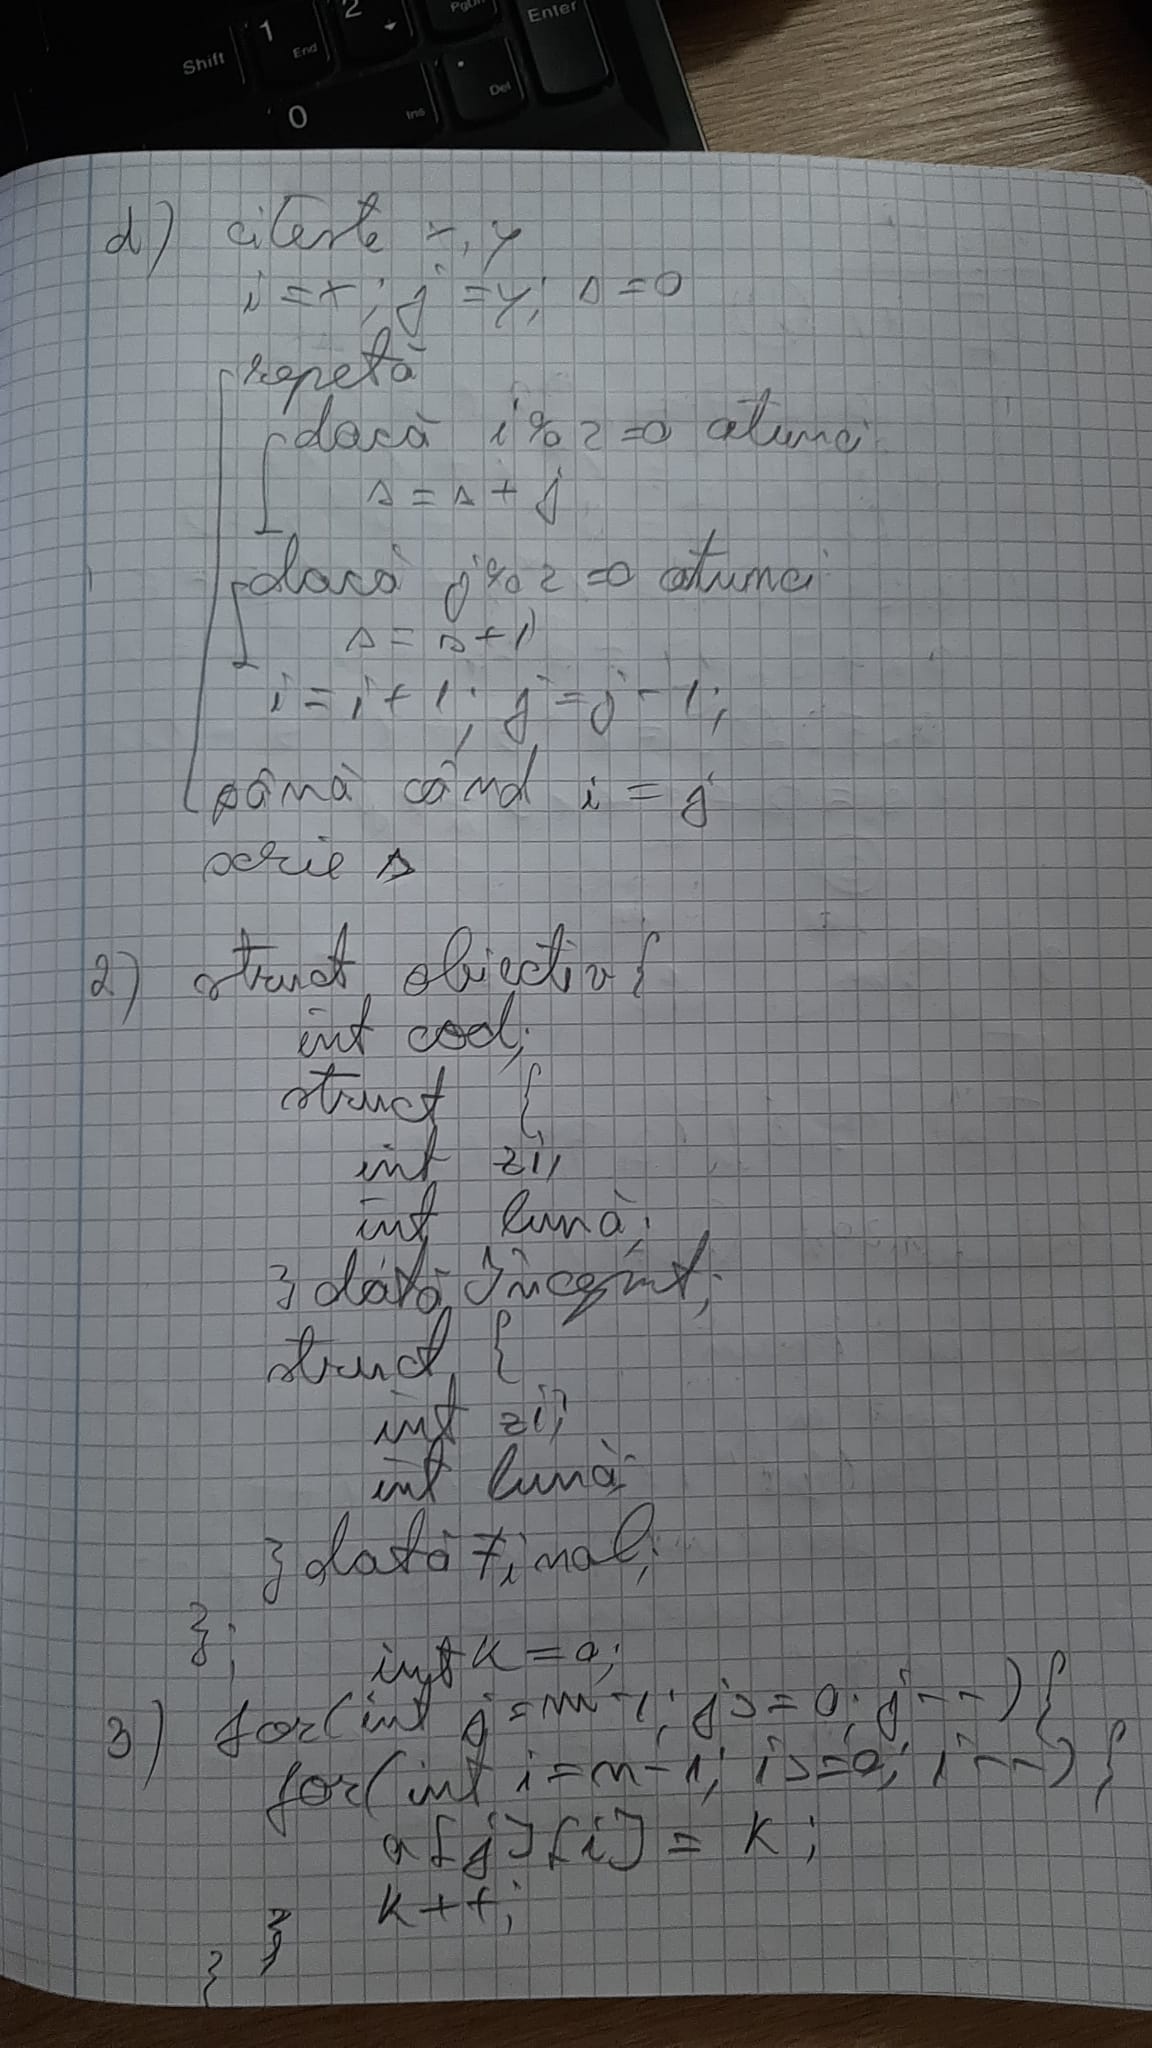 Shift
1
End
2
PgDn
Enter
0
Ins
.
Del
d) citește x, y
i=x; j=y; s=0
repetă
dacă i%2=0 atunci
s=s+j
dacă j%2=0 atunci
s=s+1
i=i+1; j=j-1;
până când i=j
scrie s
2) struct obiectiv{
int cod;
struct {
int zi;
int lună;
} dată Început;
struct {
int zi;
int lună;
} dată Final;
};
int k=0;
3) for(int j=m-1; j>=0; j--){
for(int i=n-1; i>=0; i--){
a[j][i] = k;
k++;
}
}